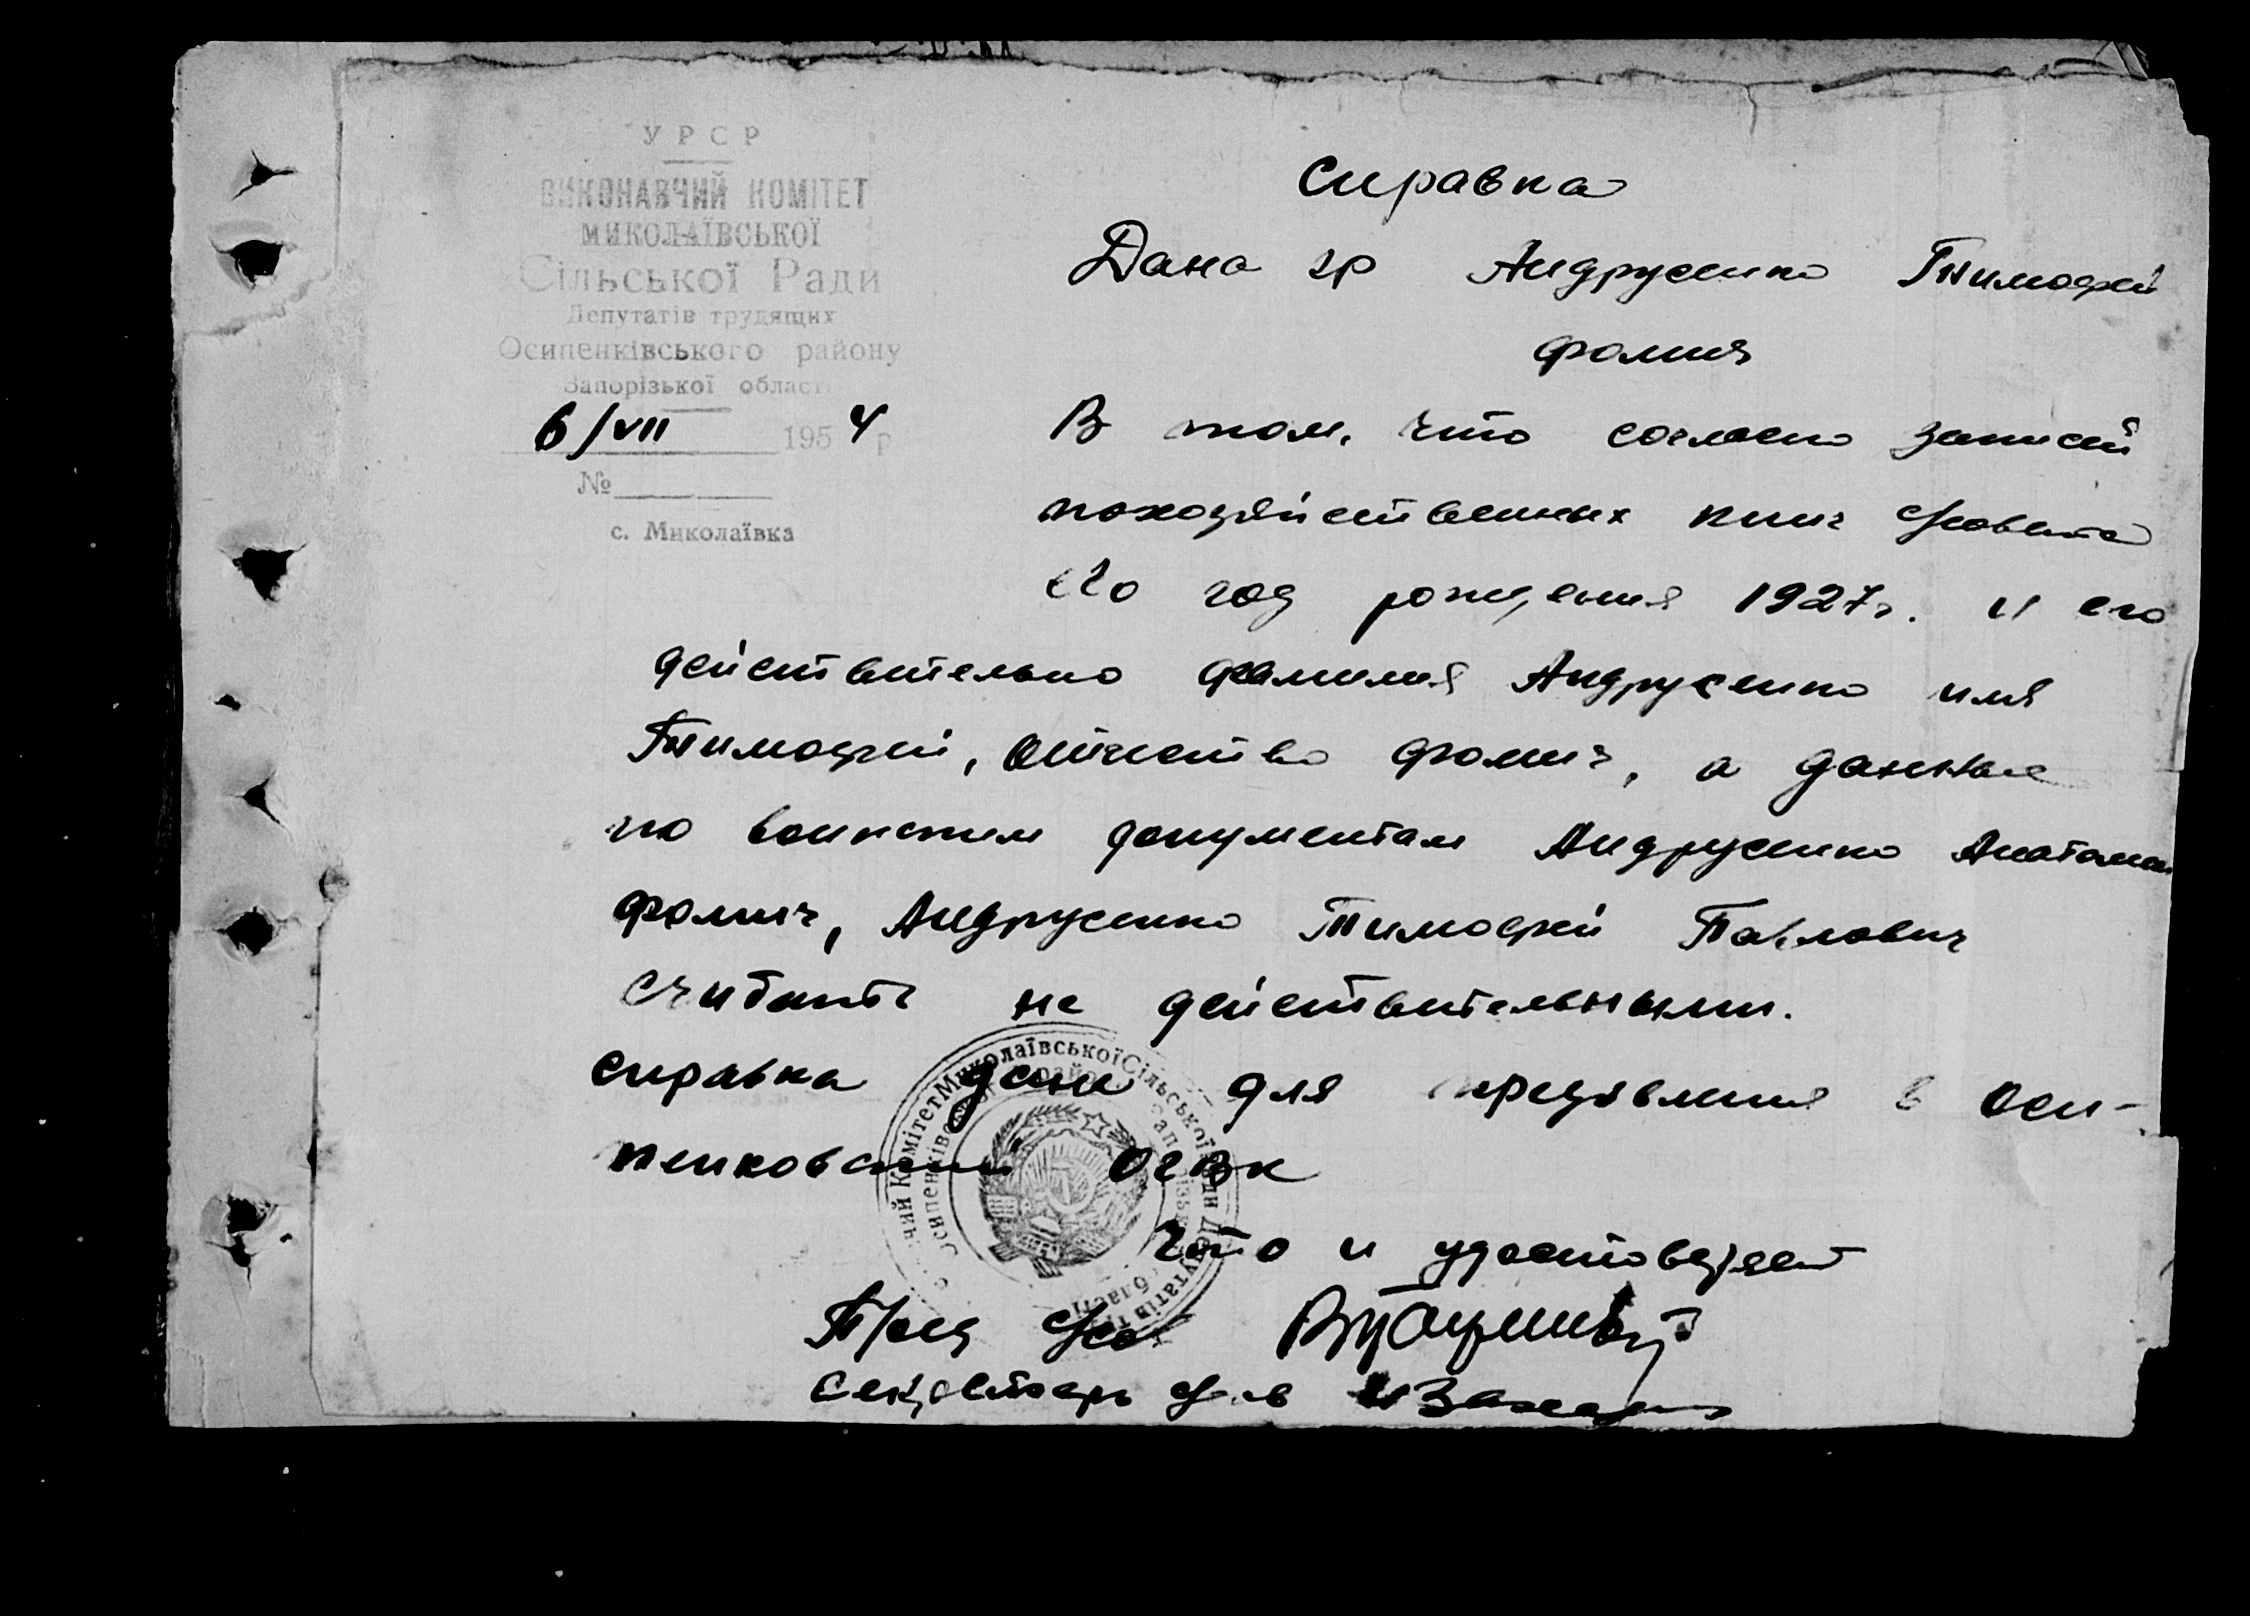 УРСР
ВИКОНАВЧИЙ КОМІТЕТ
МИКОЛАЇВСЬКОЇ
Сільської Ради
Депутатів трудящих
Осипенківського району
Запорізької області
6/VII 1954 р
№
с. Миколаївка
Справка
Дана гр Андрусенко Тимофей
Фомич
В том, что согласно записей
похозяйственных книг с/совета
его год рождения 1927г. и его
действительно фамилия Андрусенко имя
Тимофей, отчество Фомич, а данные
по воинским документам Андрусенко
Фомич, Андрусенко Тимофей Павлович
считать не действительными.
Справка дана для предявления в Оси-
пенковский ОГВК
что и удостоверяет
Пред с/сов
Секретарь с/сов
Виконавчий Комітет Миколаївської Сільської Ради Депутатів
Осипенківського району Запорізької області